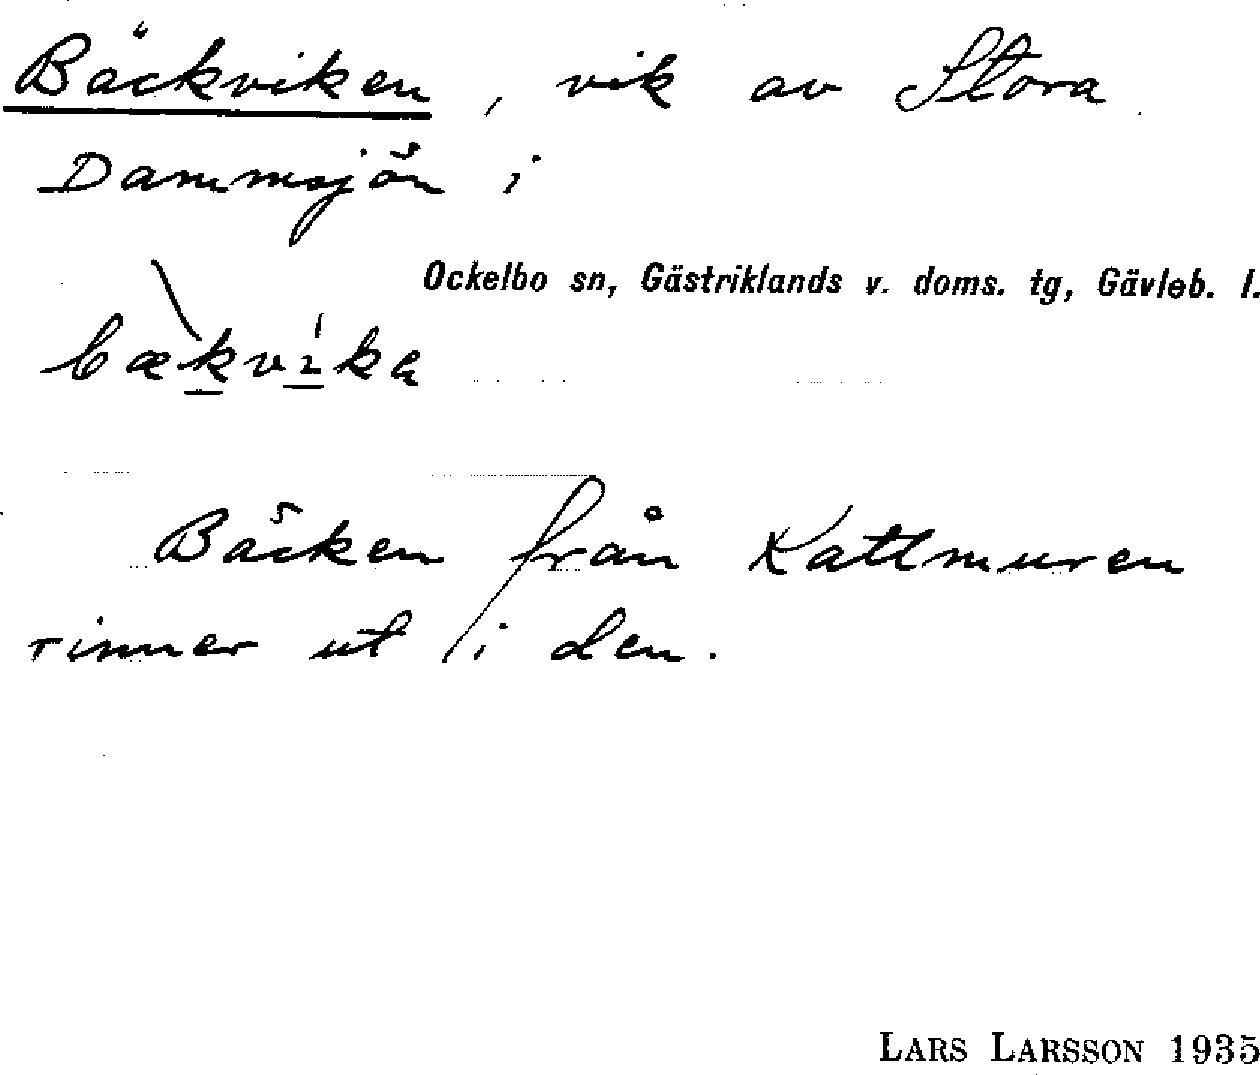 Bäckviken, vik av Stora
Dammsjön i
Ockelbo sn, Gästriklands v. doms. tg, Gävleb. l.
bækvika
Bäcken från Kattmuren
rinner ut i den.
LARS LARSSON 1935